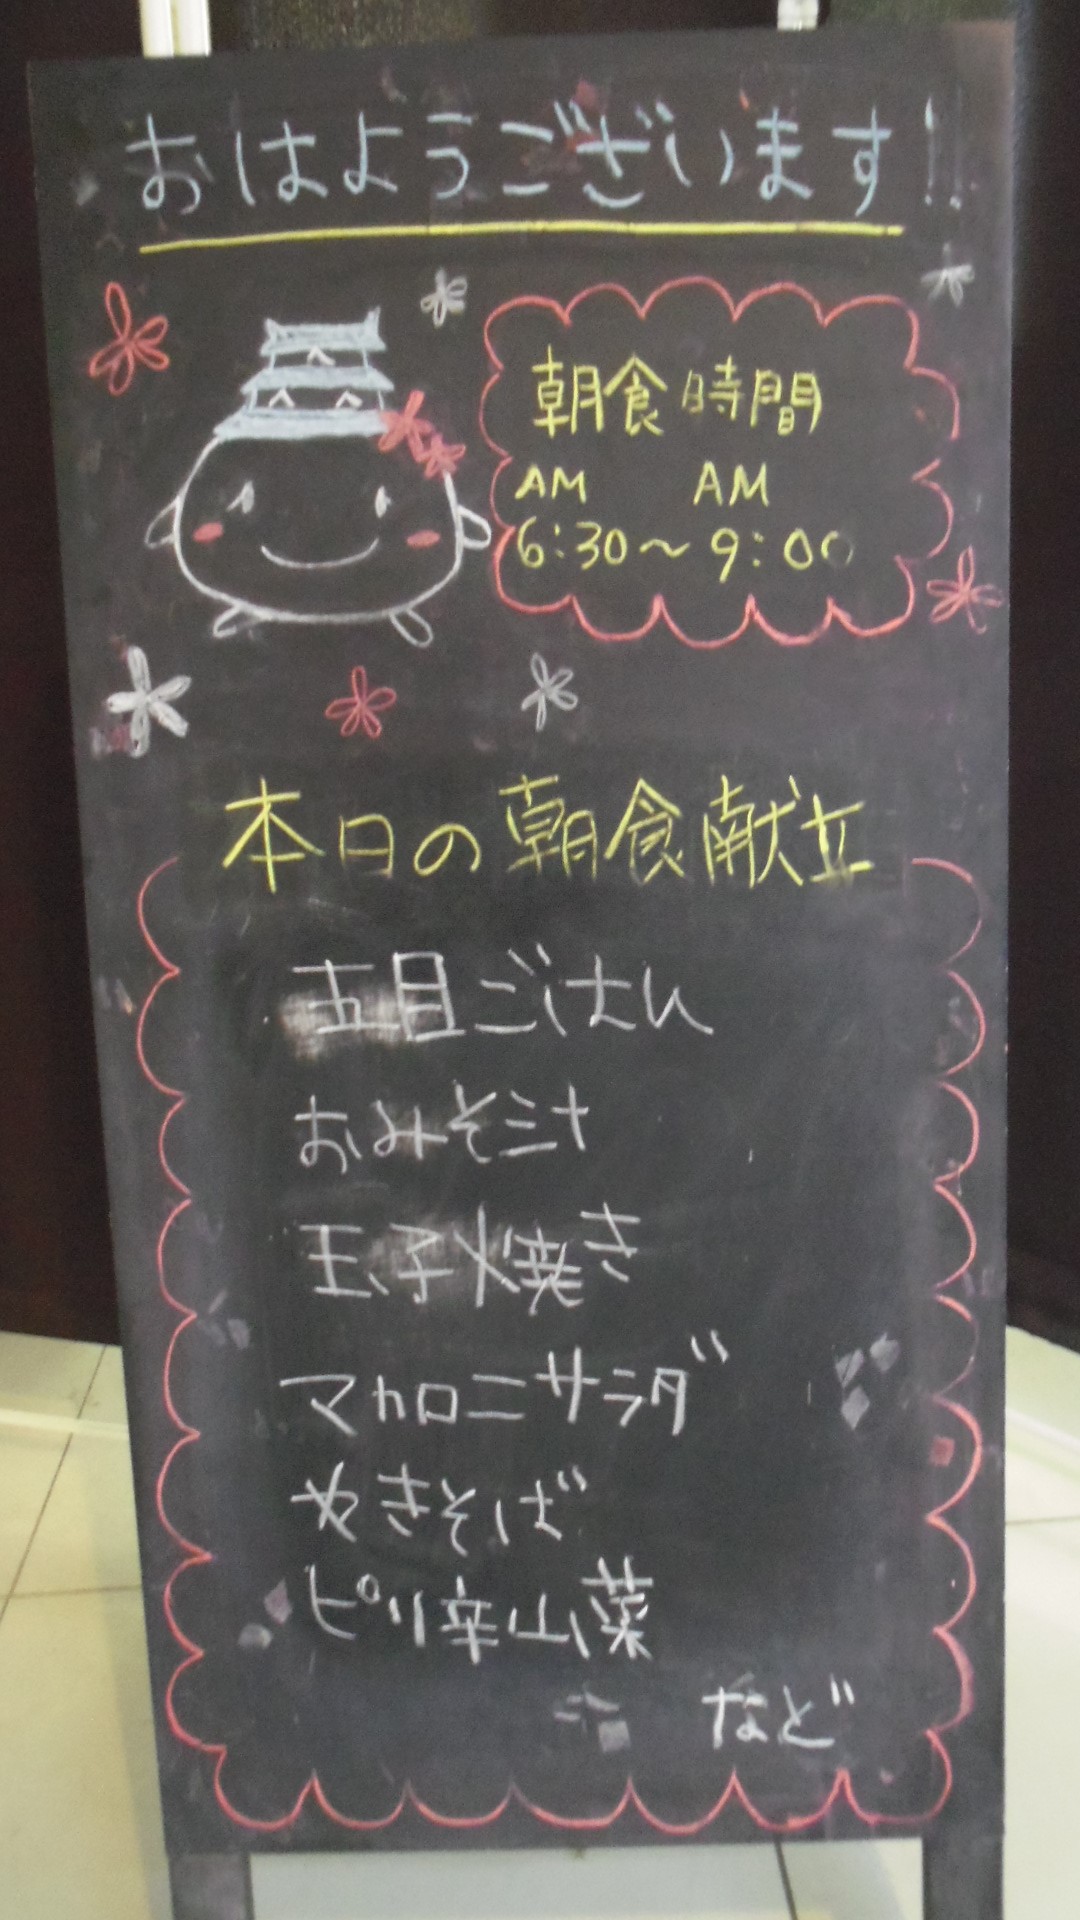 おはようございます!!
朝食時間
AM AM
6:30～9:00
本日の朝食献立
五目ごはん
おみそ汁
玉子焼き
マカロニサラダ
やきそば
ピリ辛山菜
など